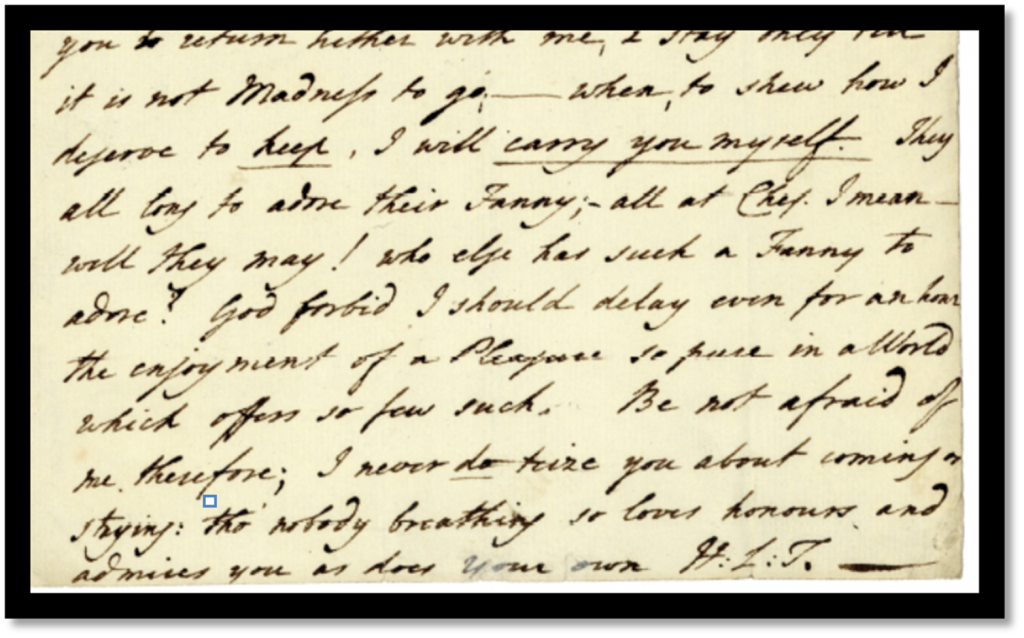 you to return hither with me, & stay only till
it is not Madness to go, — when, to shew how I
deserve to keep, I will carry you myself. They
all long to adore their Fanny; - all at Ches. I mean —
will they may! who else has such a Fanny to
adore? God forbid I should delay even for an hour
the enjoyment of a Pleasure so pure in a World
which offers so few such. Be not afraid of
me therefore; I never do teize you about coming or
staying: tho' nobody breathing so loves honours and
admires you as does your own H: L: T. —